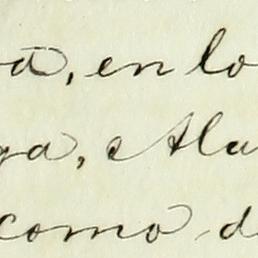 a, en lo
ga, Alu
como d